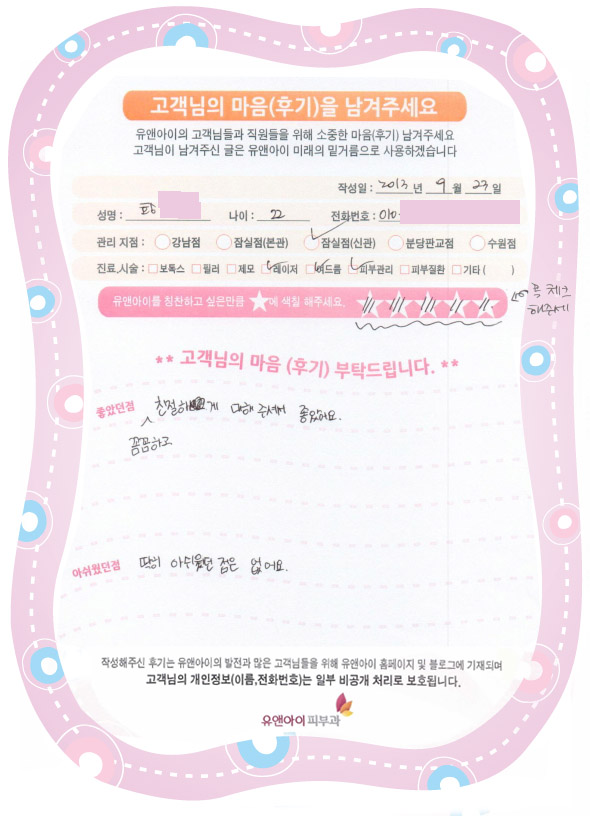 고객님의 마음(후기)을 남겨주세요
유앤아이의 고객님들과 직원들을 위해 소중한 마음(후기) 남겨주세요
고객님이 남겨주신 글은 유앤아이 미래의 밑거름으로 사용하겠습니다
작성일 : 2013 년 9 월 23 일
성명 : 나이 : 22 전화번호 : 010-
관리 지점 : 강남점 잠실점(본관) 잠실점(신관) 분당판교점 수원점
진료,시술 : 보톡스 필러 제모 레이저 여드름 피부관리 피부질환 기타 ( )
유앤아이를 칭찬하고 싶은만큼 ★에 색칠 해주세요.
꼭 체크
해주세
** 고객님의 마음 (후기) 부탁드립니다. **
좋았던점 친절하게 대해 주셔서 좋았어요.
꼼꼼하고
아쉬웠던점 딱히 아쉬웠던 점은 없어요.
작성해주신 후기는 유앤아이의 발전과 많은 고객님들을 위해 유앤아이 홈페이지 및 블로그에 기재되며
고객님의 개인정보(이름,전화번호)는 일부 비공개 처리로 보호됩니다.
유앤아이피부과